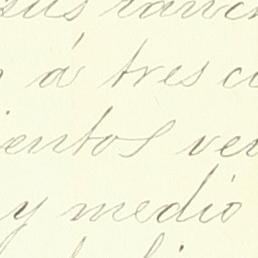 sus ranch
á tres c
ientos ve
y medio